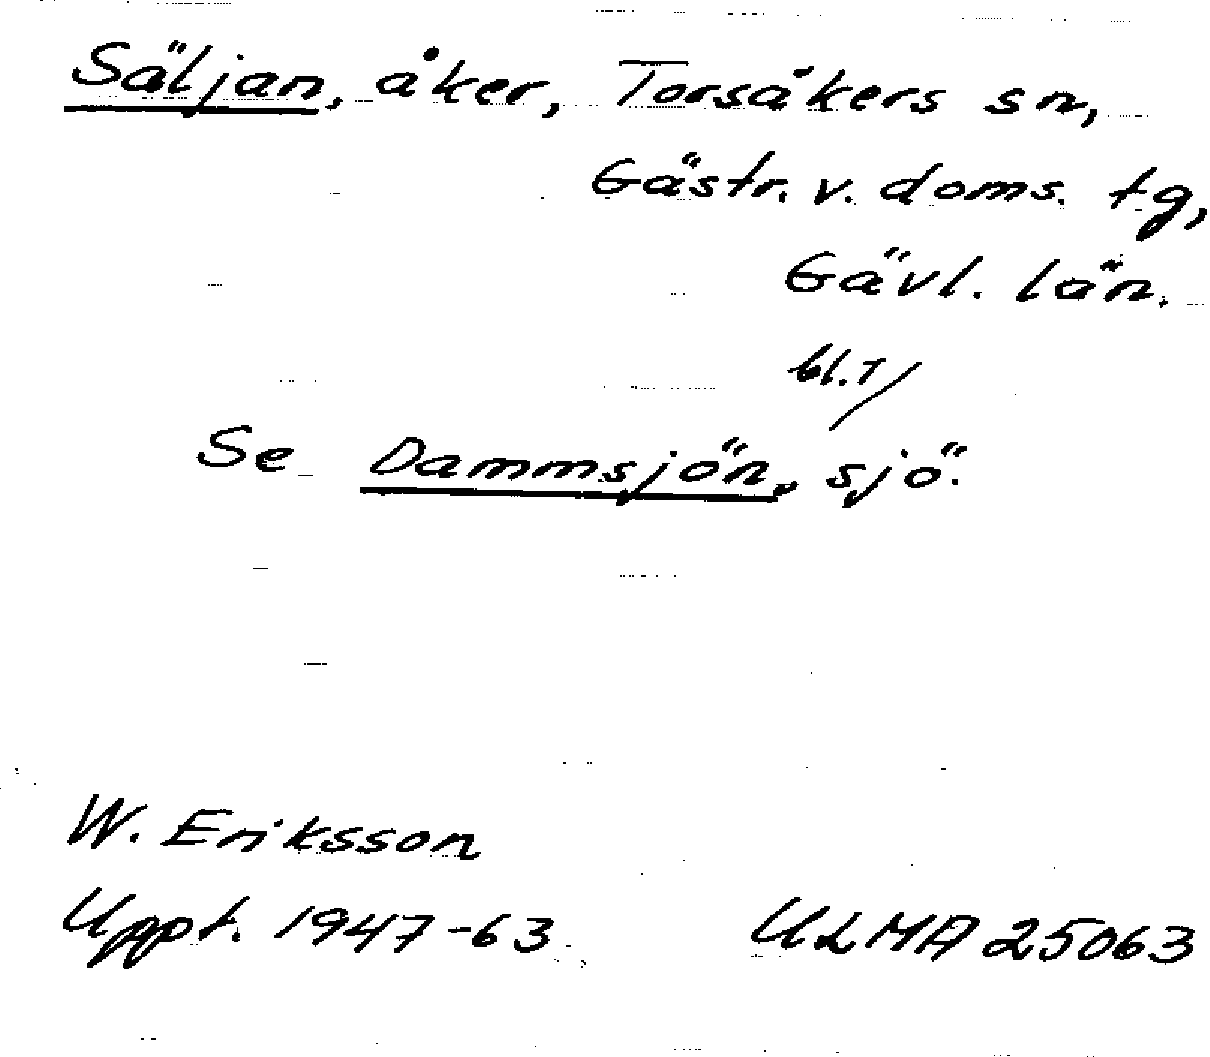 Säljan, åker, Torsåkers sn,
Gästr. v. doms. tg,
Gävl. län.
bl. 1/
Se Dammsjön, sjö.
W. Eriksson
Uppt. 1947-63
ULMA 25063